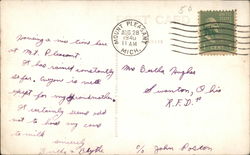 50
POST CARD
MOUNT PLEASANT
AUG 28
11 AM
1940
MICH.
Having a nice time here
at Mt. Pleasant.
It has rained constantly
so far. Everyone is well
except for my Grandmother.
It certainly seems odd
not to have any cows
to milk
Sincerely
Mrs Bertha Hughes
Swanton, Ohio
R.F.D.
c/o John